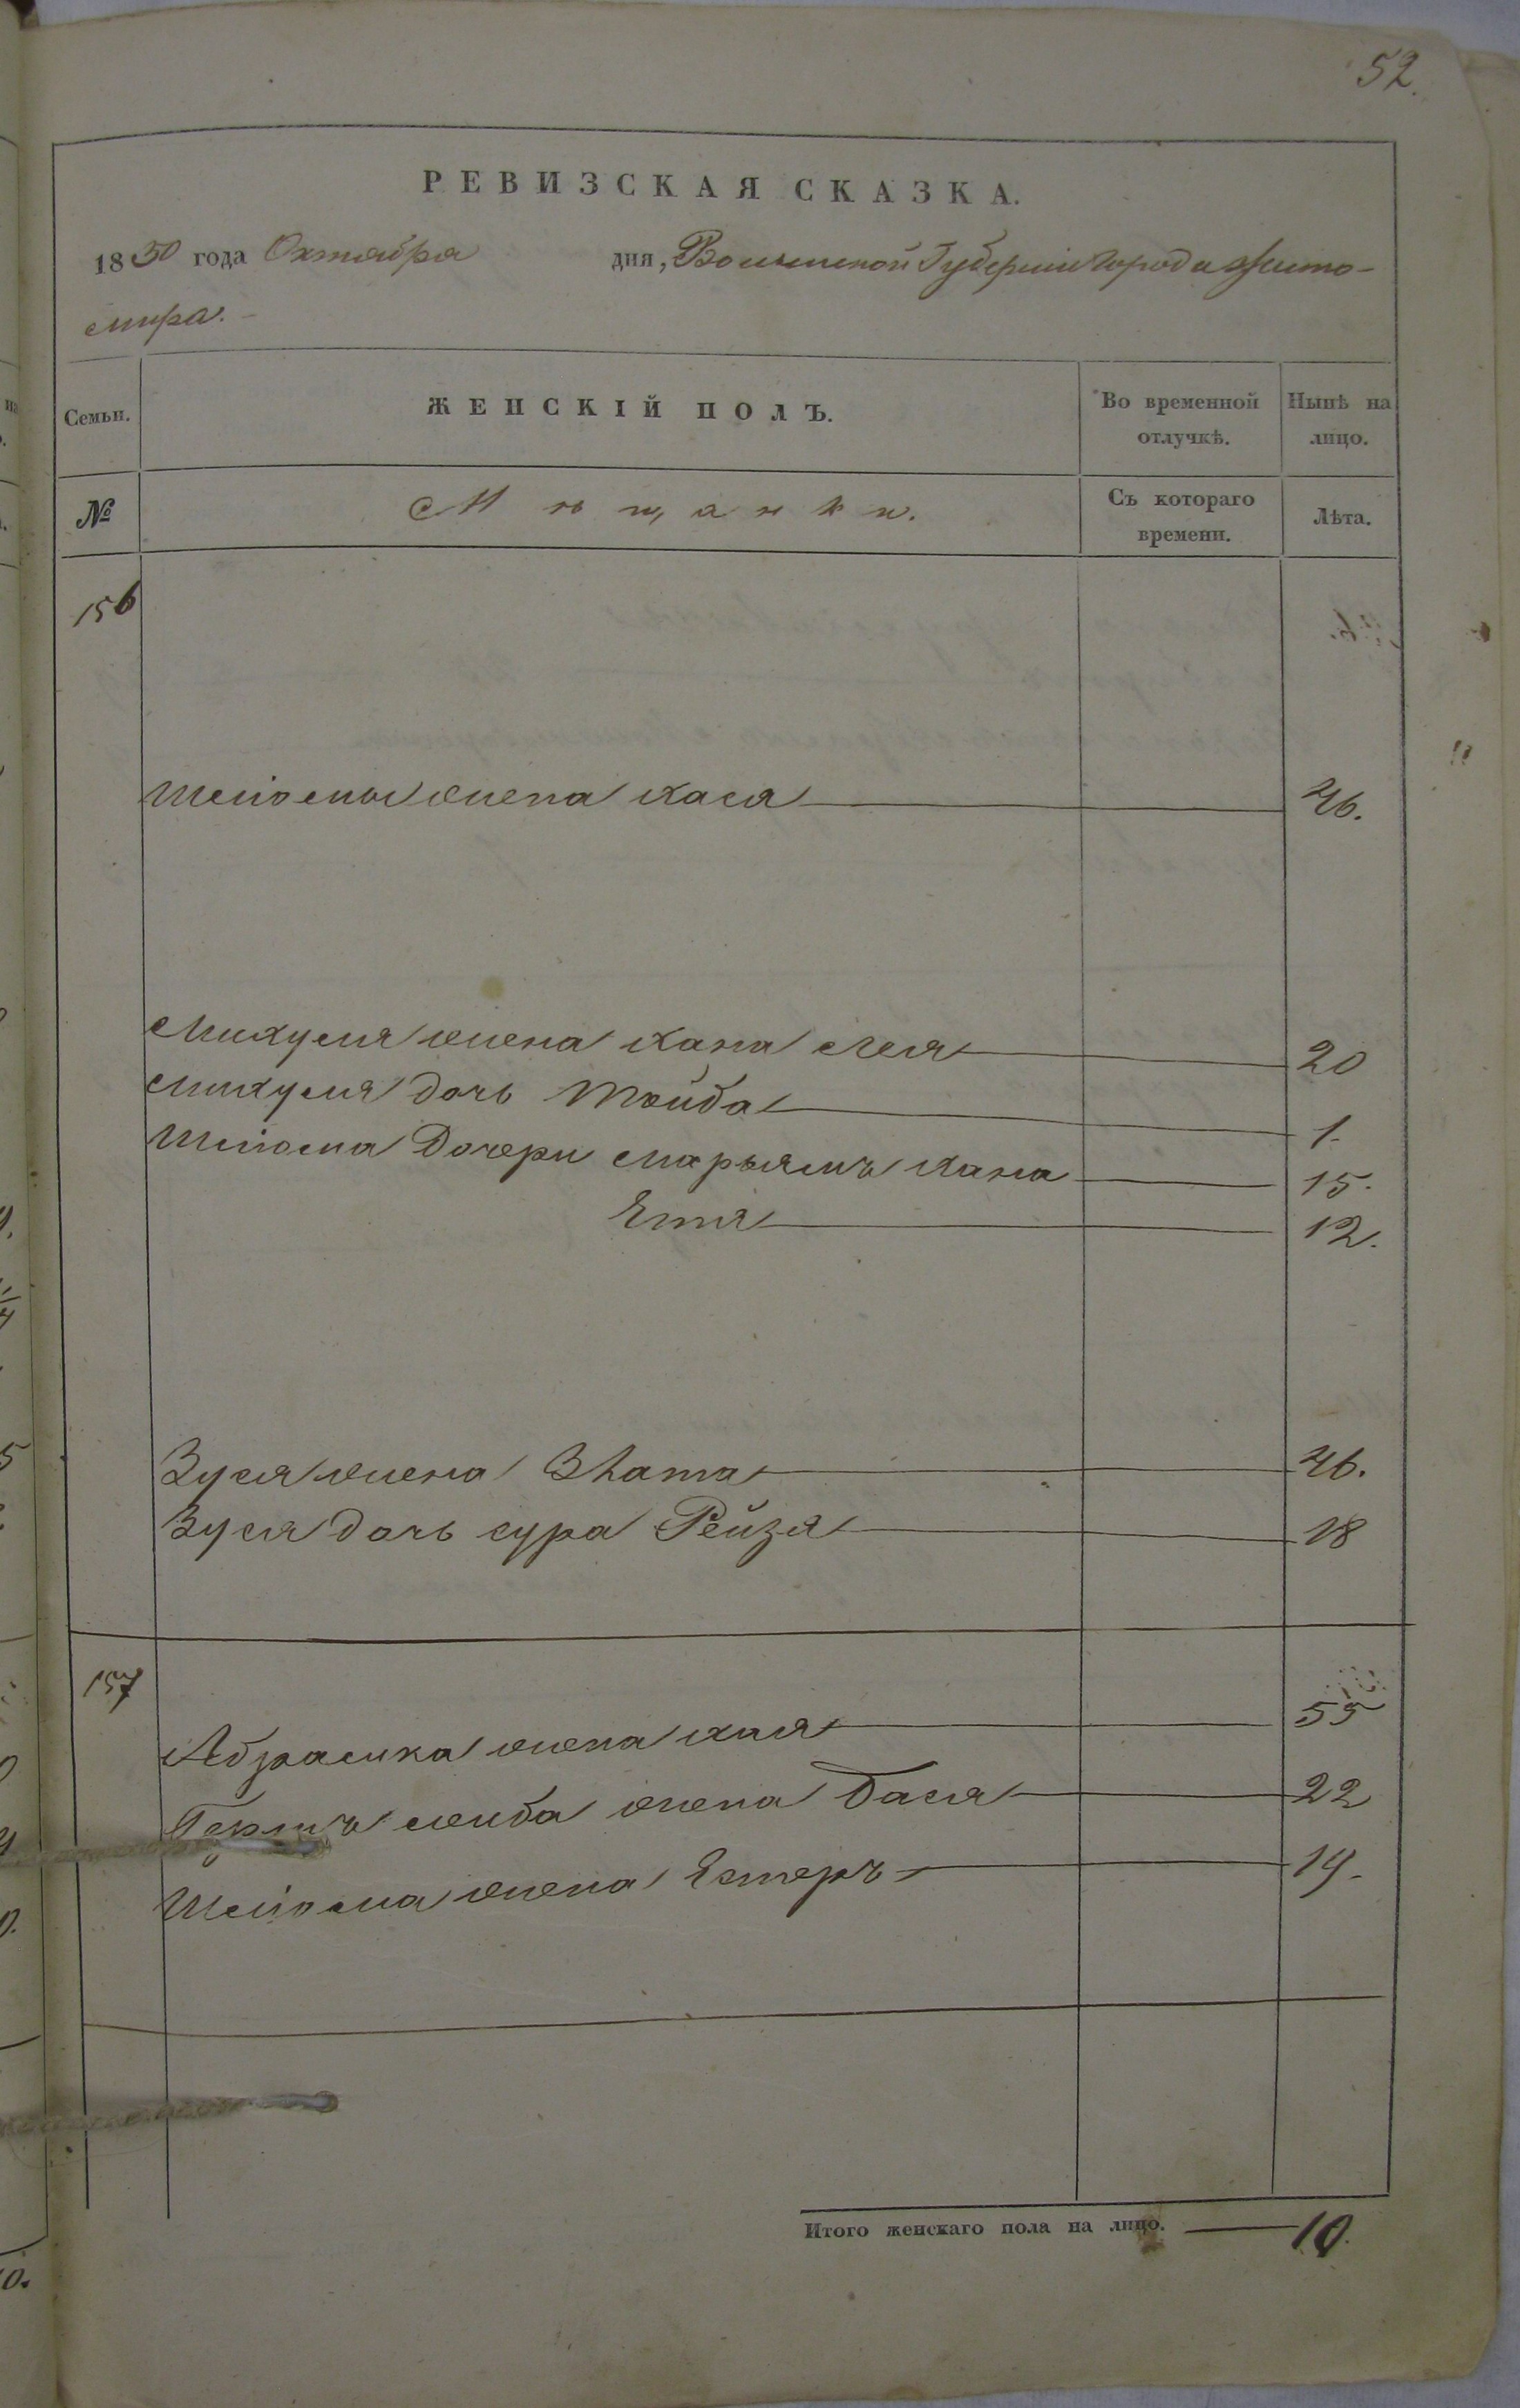 52.
РЕВИЗСКАЯ СКАЗКА.
1850 года Октября дня, Волынской Губернии города Жито-
мира.
Семьи. ЖЕНСКІЙ ПОЛЪ. Во временной отлучкѣ. Нынѣ на лицо.
№ Мѣщанки. Съ котораго времени. Лѣта.
156
Шліомы жена Хася 46.
Михуля жена Хана Лея 20
Михуля дочь Тойба 1.
Шліома Дочери Марьямъ Хана 15.
Етя 12.
Зуся жена Злата 46.
Зуся дочь Сура Рейзя 18
157
Абрамка жена Хая 55
Лейба жена Бася 22
Шліома жена Естеръ 19.
Итого женскаго пола на лицо. 10.